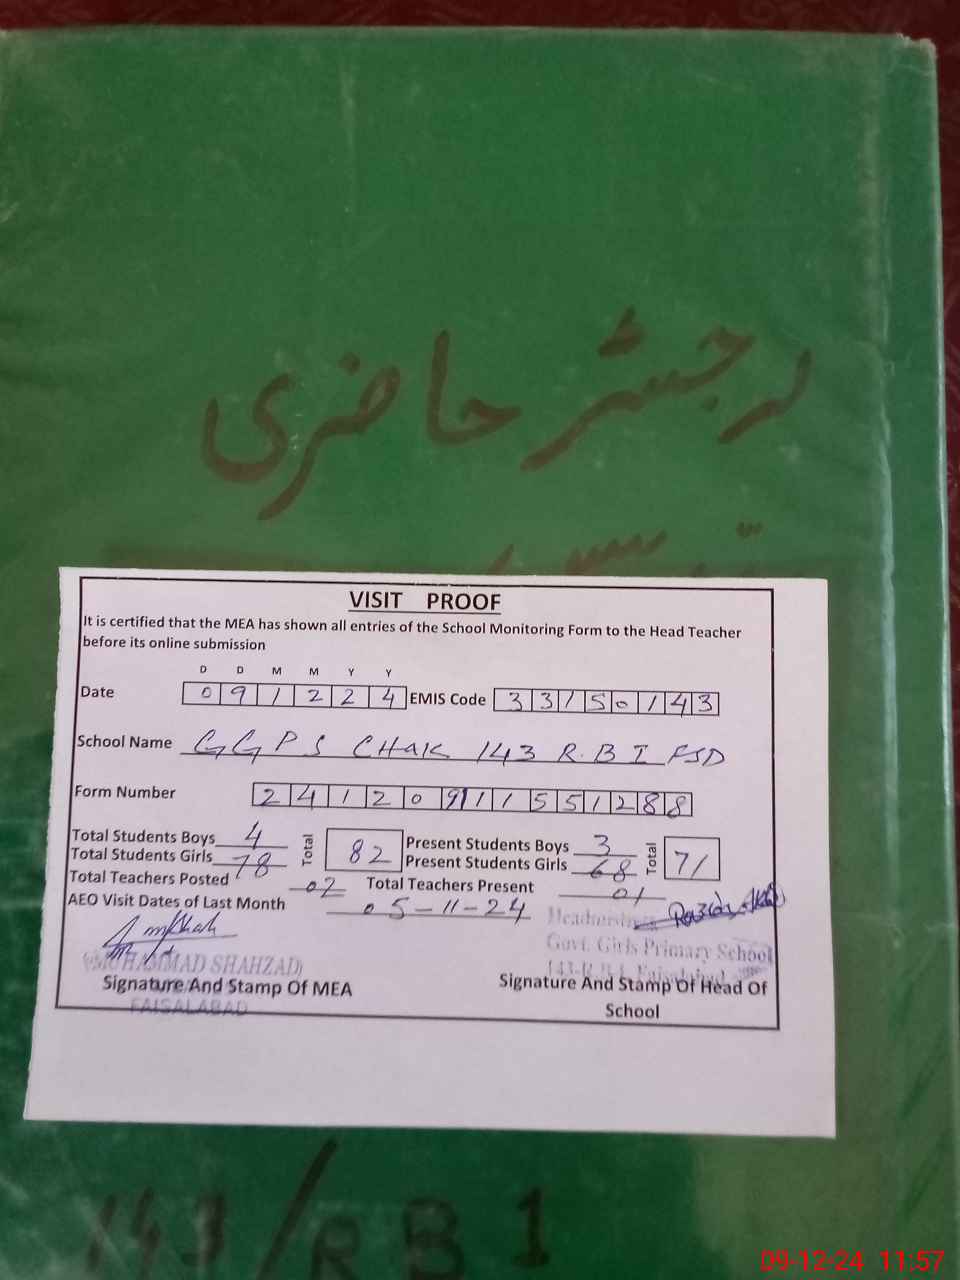 رجسٹر حاضری
VISIT PROOF
It is certified that the MEA has shown all entries of the School Monitoring Form to the Head Teacher
before its online submission
D D M M Y Y
Date 0 9 1 2 2 4 EMIS Code 3 3 1 5 0 1 4 3
School Name GGPS CHAK 143 R.B I FSD
Form Number 2 4 1 2 0 9 1 1 5 5 1 2 8 8
Total Students Boys 4 Total 82 Present Students Boys 3 Total 71
Total Students Girls 78 Present Students Girls 68
Total Teachers Posted 02 Total Teachers Present 01
AEO Visit Dates of Last Month 05-11-24
Headmistress
Govt. Girls Primary School
143-R.B-I, Faisalabad
(MUHAMMAD SHAHZAD)
Signature And Stamp Of MEA
FAISALABAD
Signature And Stamp Of Head Of
School
143/RB 1
09-12-24 11:57